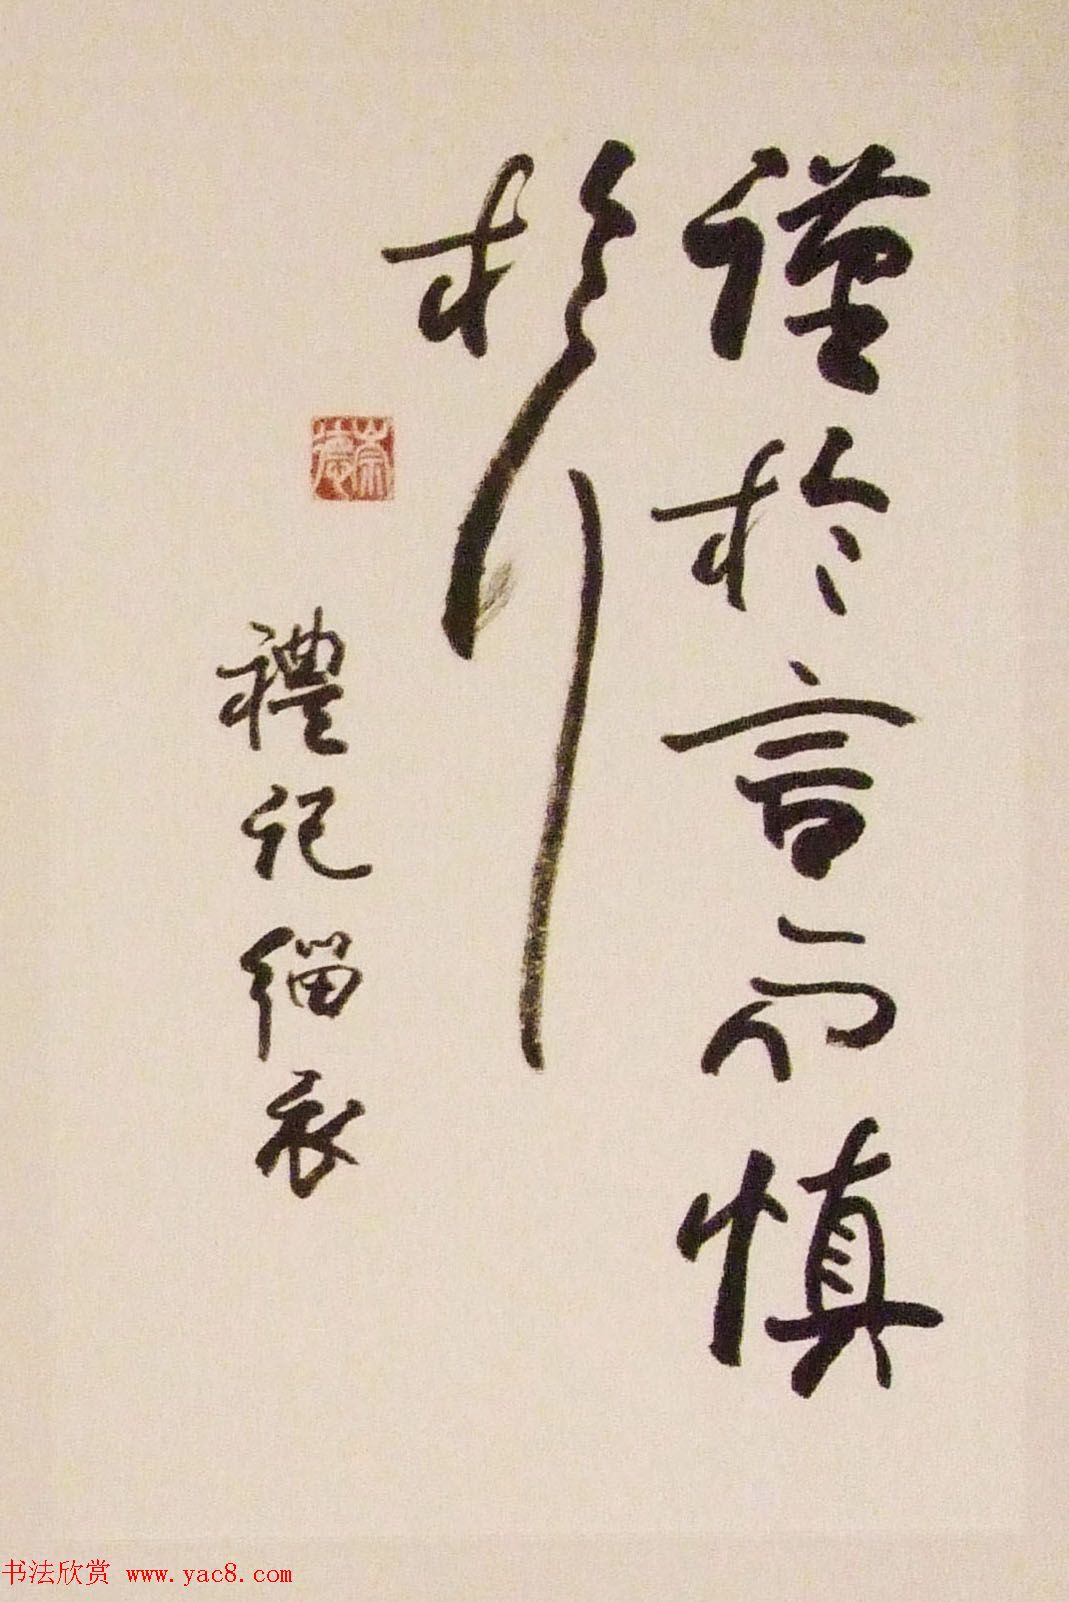 謹於言而慎
於行
禮記緇衣
崇德
书法欣赏 www.yac8.com